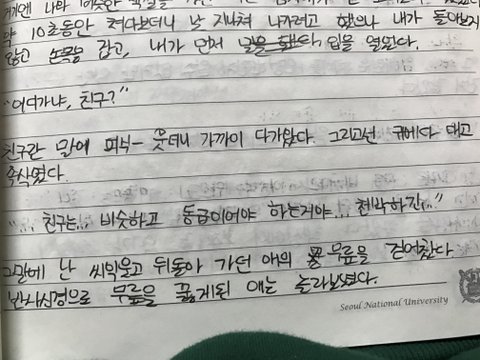 약 10초동안 쳐다보더니 날 지나쳐 나가려고 했으나 내가 돌아보지
않고 손목을 잡고, 내가 먼저 말을 했다, 입을 열었다.
"어디가냐, 친구?"
친구란 말에 피식- 웃더니 가까이 다가왔다. 그리고선 귀에다 대고
속삭였다.
"... 친구는... 비슷하고 동급이어야 하는거야... 천박하긴..."
그말에 난 씨익웃고 뒤돌아 가던 애의 무릎을 걷어찼다
반사신경으로 무릎을 꿇게된 애는 놀라보였다.
Seoul National University